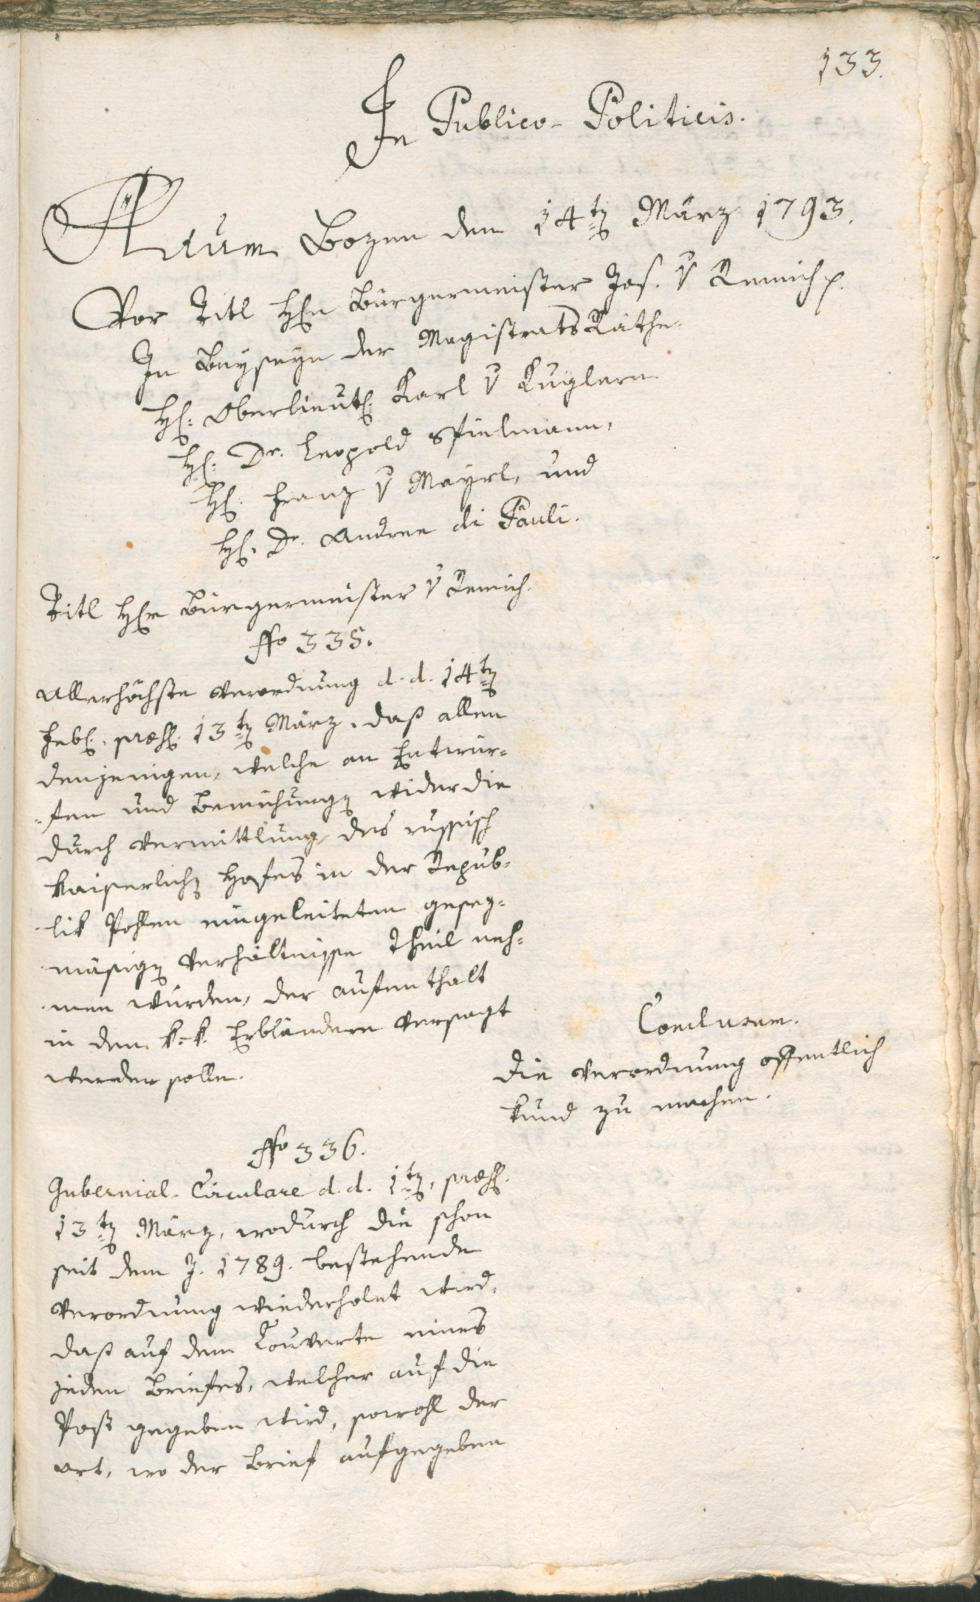 133.
In Publico-Politicis.
Actum Bozen den 14tn März 1793.
Vor Titl Hn Bürgermeister Jos. v Remich p.
In Beyseyn der Magistrats Räthe.
H: Oberlieut: Karl v Kuglern.
H: Dr. Leopold Spielmann,
H: Franz v Mayrl, und
H. Dr. Andree di Pauli.
Titl Hr Bürgermeister v Remich.
No 335.
Allerhöchste Verordnung d. d. 14tn
Feb:, præs: 13tn März. daß allen
denjenigen, welche an Entwür-
fen und Bemühungen wider die
durch Vermittlung des russisch
kaiserlichen Hofes in der Repub-
lik Pohlen eingeleiteten gesez-
mäsigen Verhältnisse Theil neh-
men würden, der Aufenthalt
in den k. k. Erbländern versagt
werden solle.
Conclusum.
Die Verordnung offentlich
kund zu machen.
No 336.
Gubernial-Circulare d. d. 1tn, præs:
13tn März, wodurch die schon
seit dem J. 1789. bestehende
Verordnung wiederholet wird,
daß auf dem Couverte eines
jeden Briefes, welcher auf die
Post gegeben wird, sowohl der
Ort, wo der Brief aufgegeben